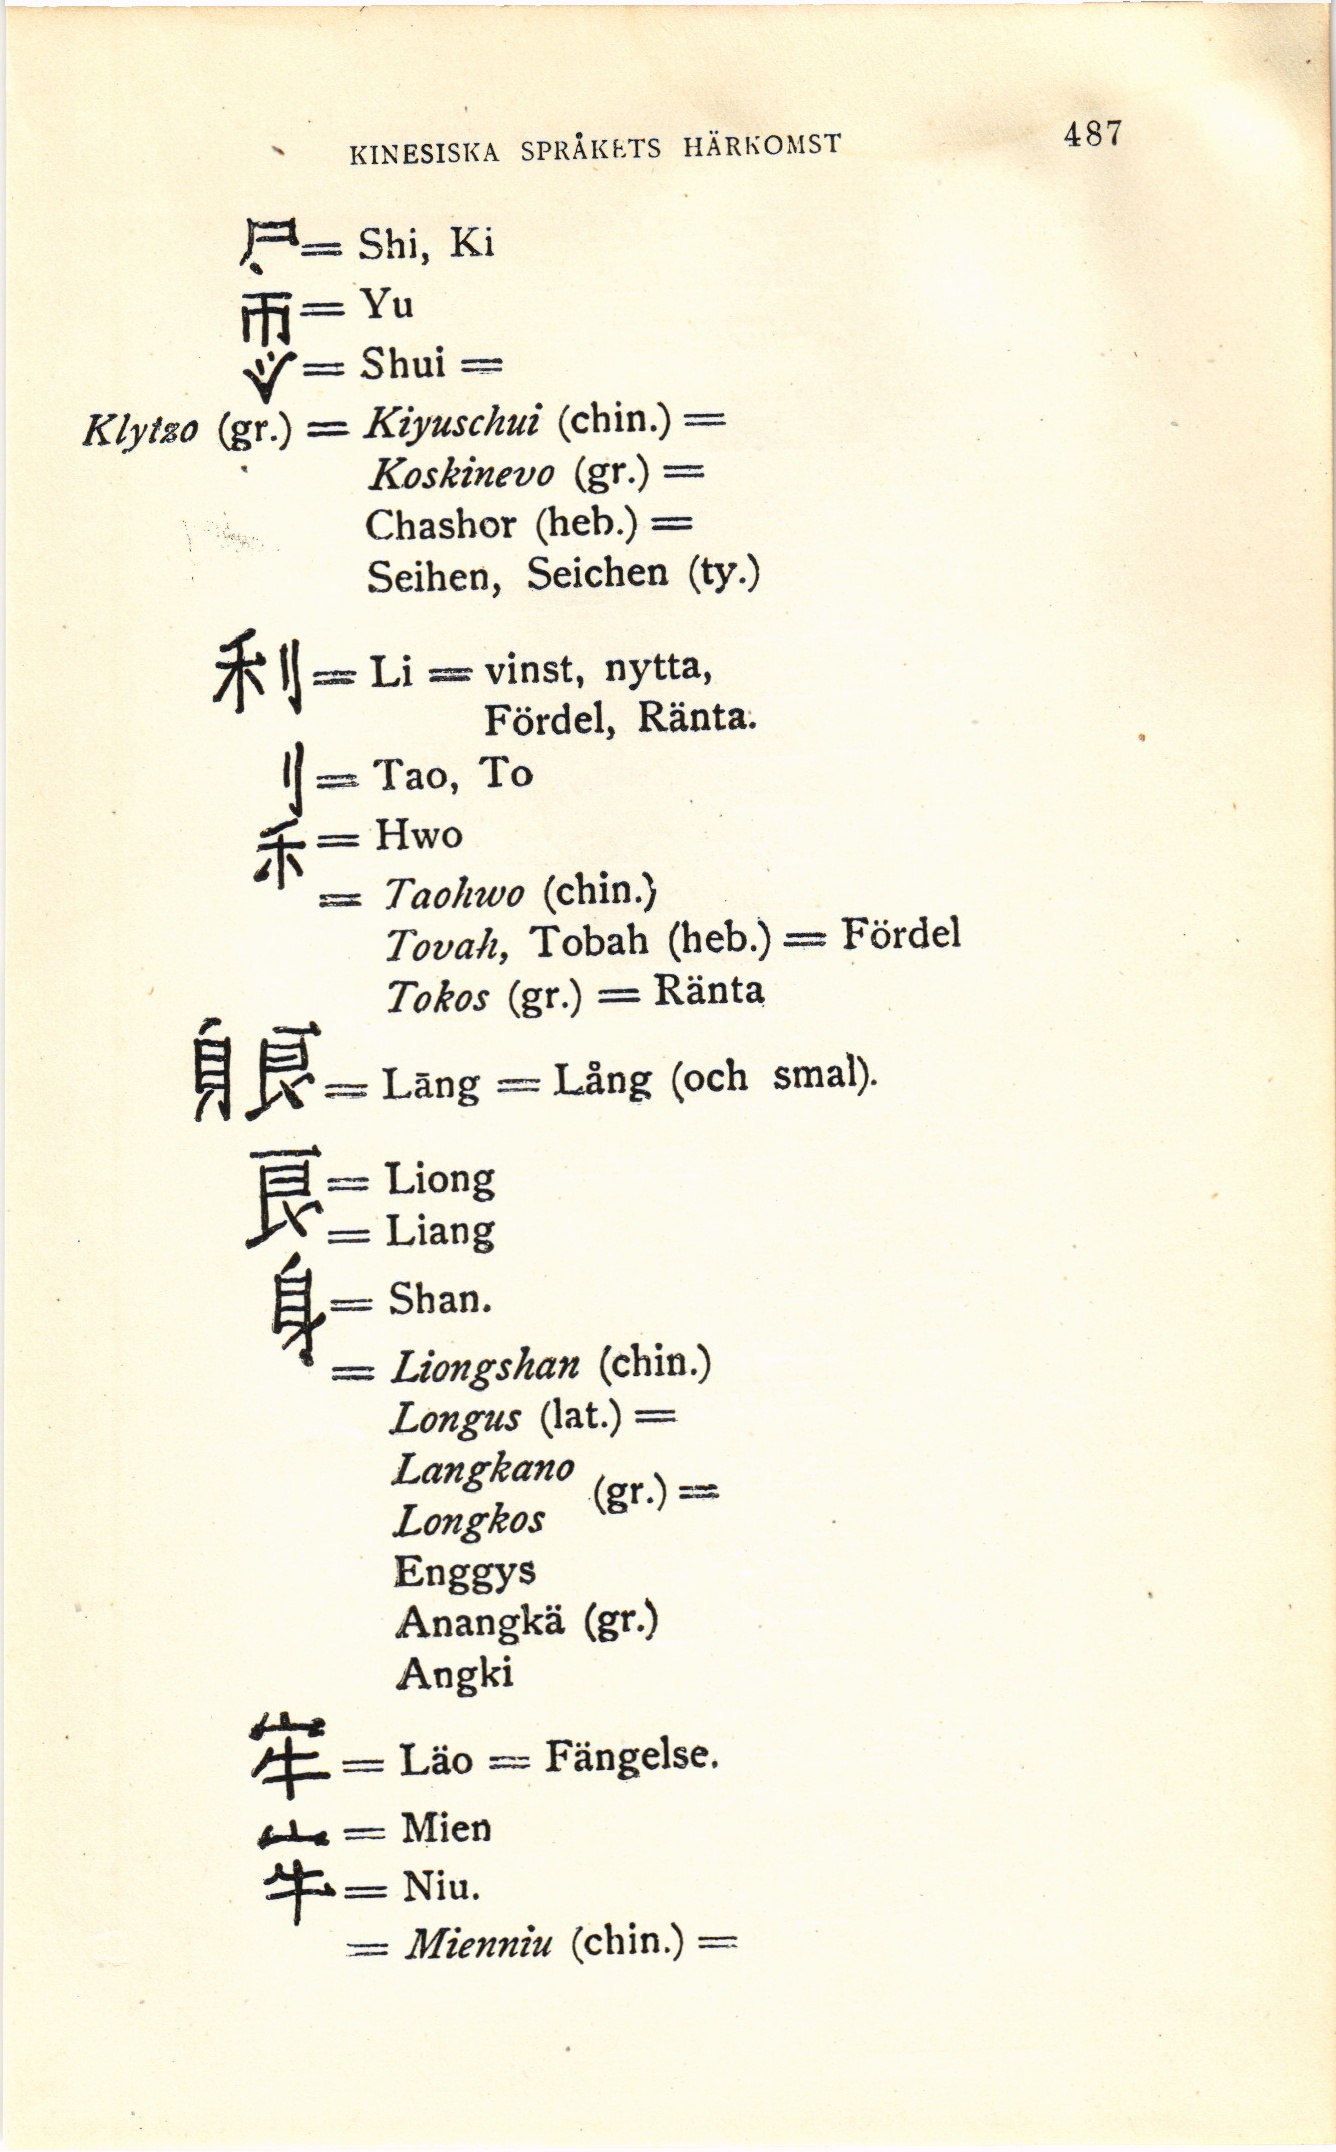 KINESISKA SPRÅKETS HÄRKOMST 487
= Shi, Ki
= Yu
= Shui =
Klytzo (gr.) = Kiyuschui (chin.) =
Koskinevo (gr.) =
Chashor (heb.) =
Seihen, Seichen (ty.)
利 = Li = vinst, nytta,
Fördel, Ränta.
刂 = Tao, To
禾 = Hwo
= Taohwo (chin.)
Tovah, Tobah (heb.) = Fördel
Tokos (gr.) = Ränta
躴 = Lāng = Lång (och smal).
良 = Liong
= Liang
身 = Shan.
= Liongshan (chin.)
Longus (lat.) =
Langkano
(gr.) =
Longkos
Enggys
Anangkä (gr.)
Angki
牢 = Läo = Fängelse.
宀 = Mien
牛 = Niu.
= Mienniu (chin.) =